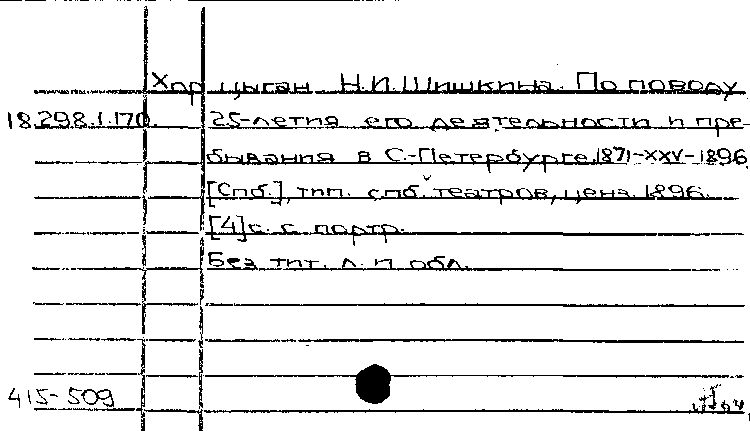 Хор цыган Н.И. Шишкина. По поводу
18.298.1.170. 25-летия его деятельности и пре-
бывания в С.-Петербурге. 1871-XXV-1896.
[Спб.], тип. спб. театров, ценз. 1896.
[4] с. с портр.
Без тит. л. и обл.
415-509